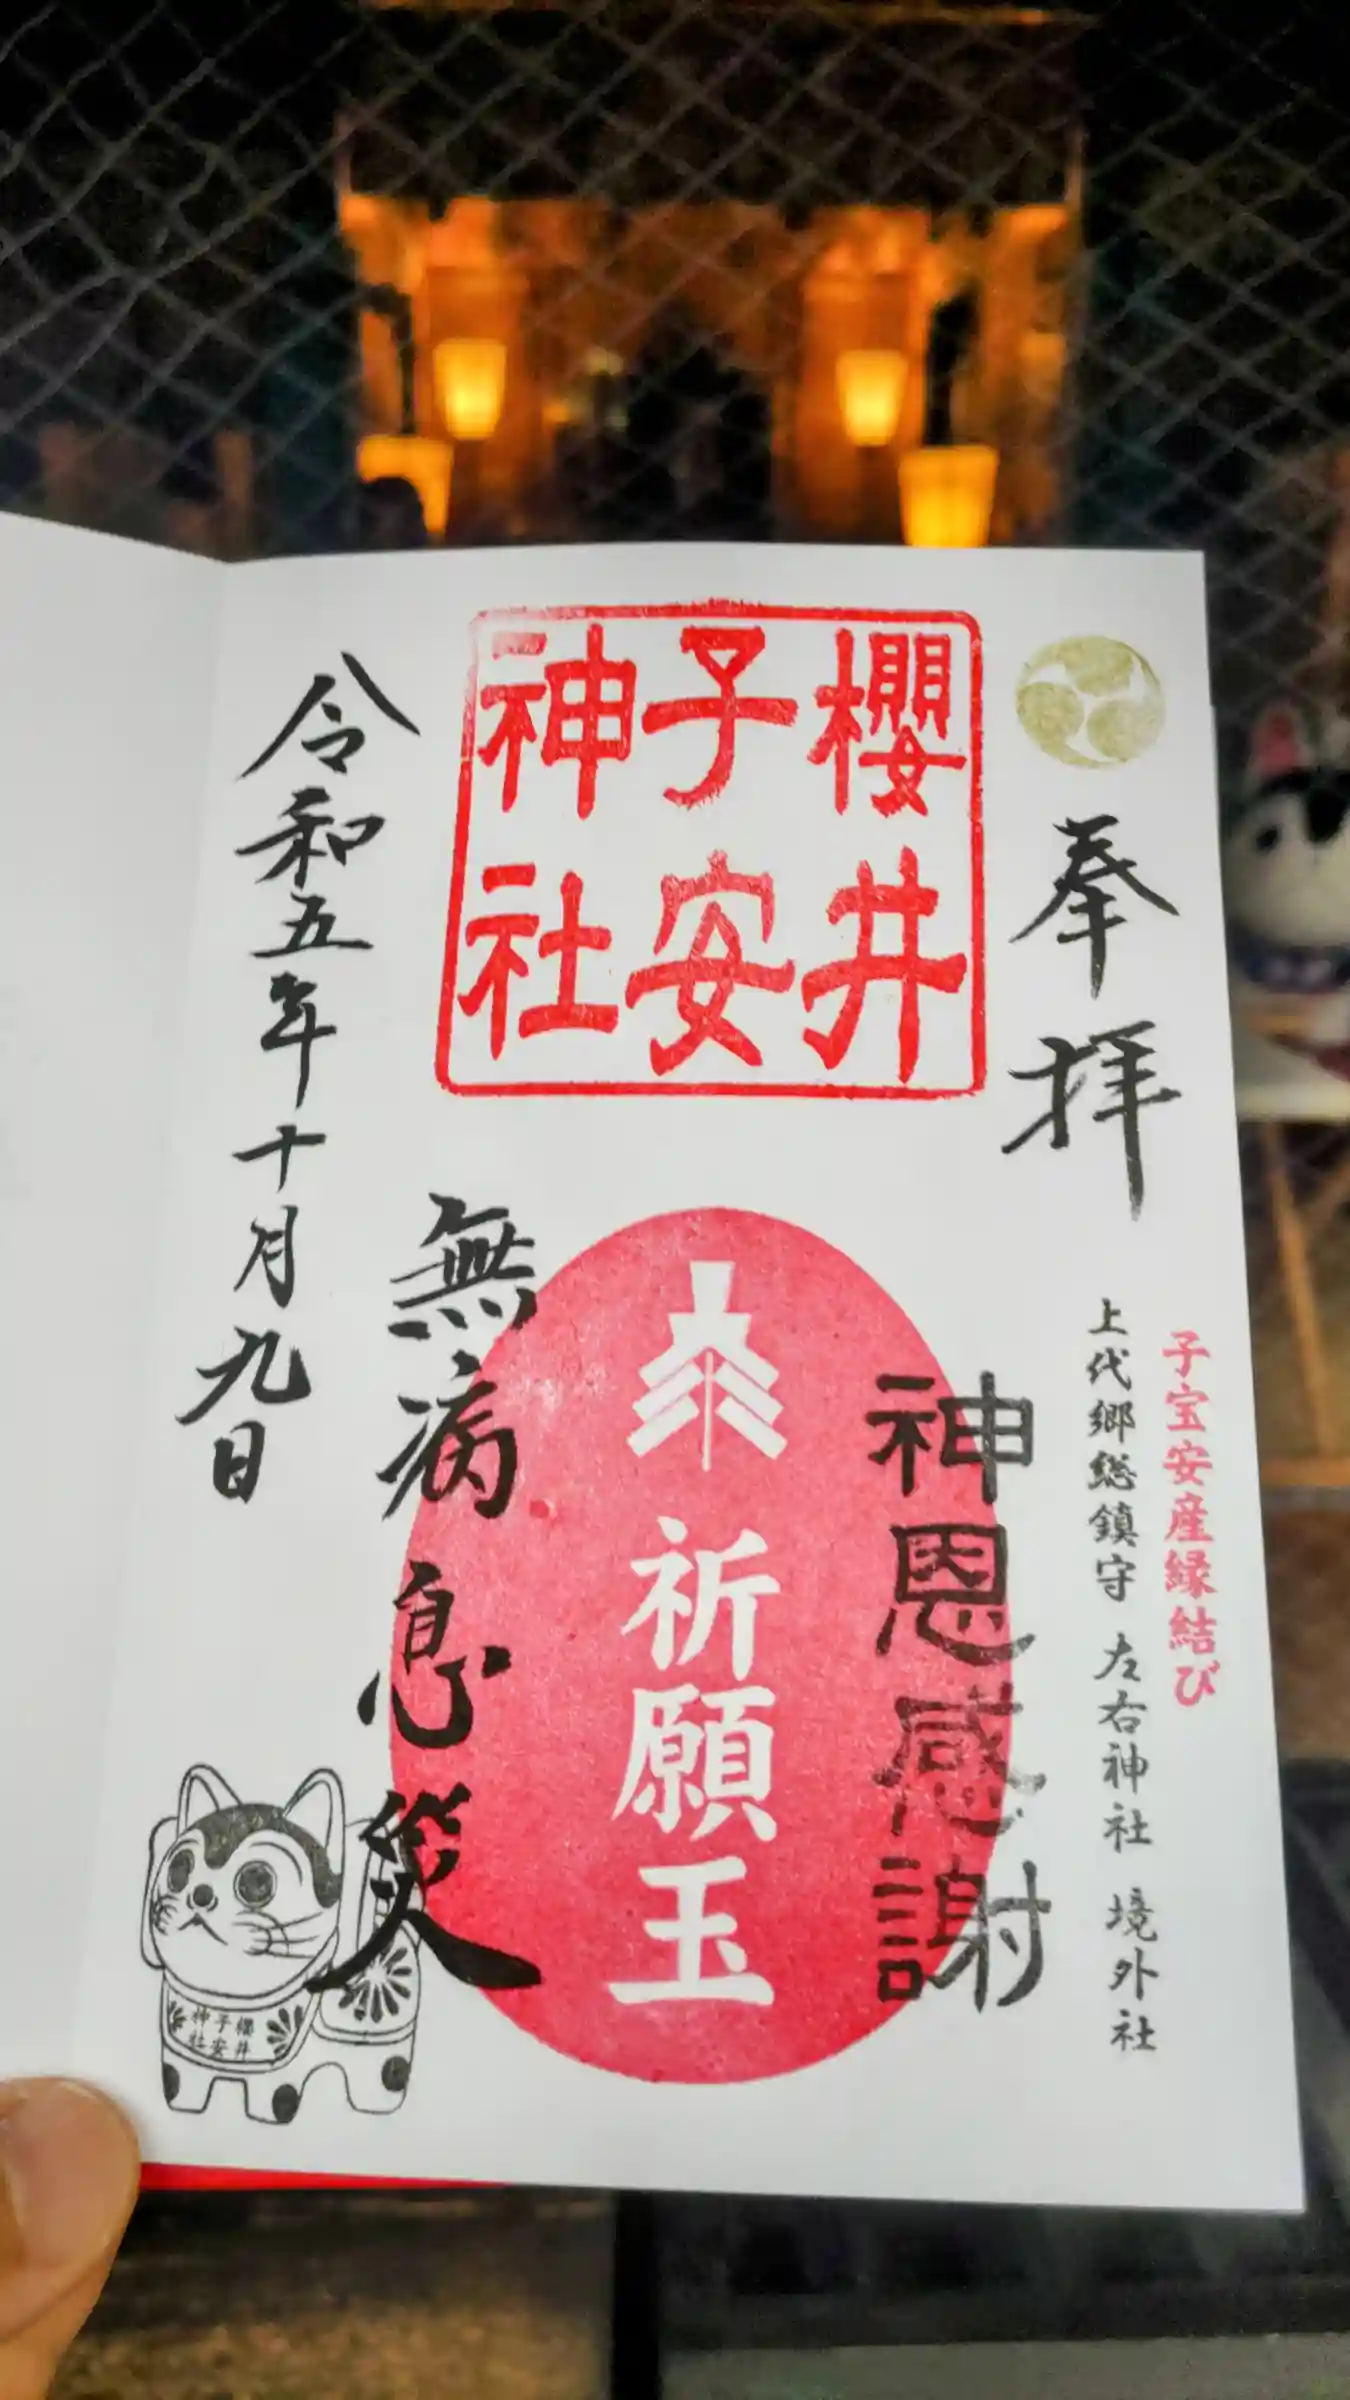 奉拝
子宝安産縁結び
上代郷総鎮守 左右神社 境外社
櫻井
子安
神社
神恩感謝
祈願玉
無病息災
令和五年十月九日
櫻井
子安
神社